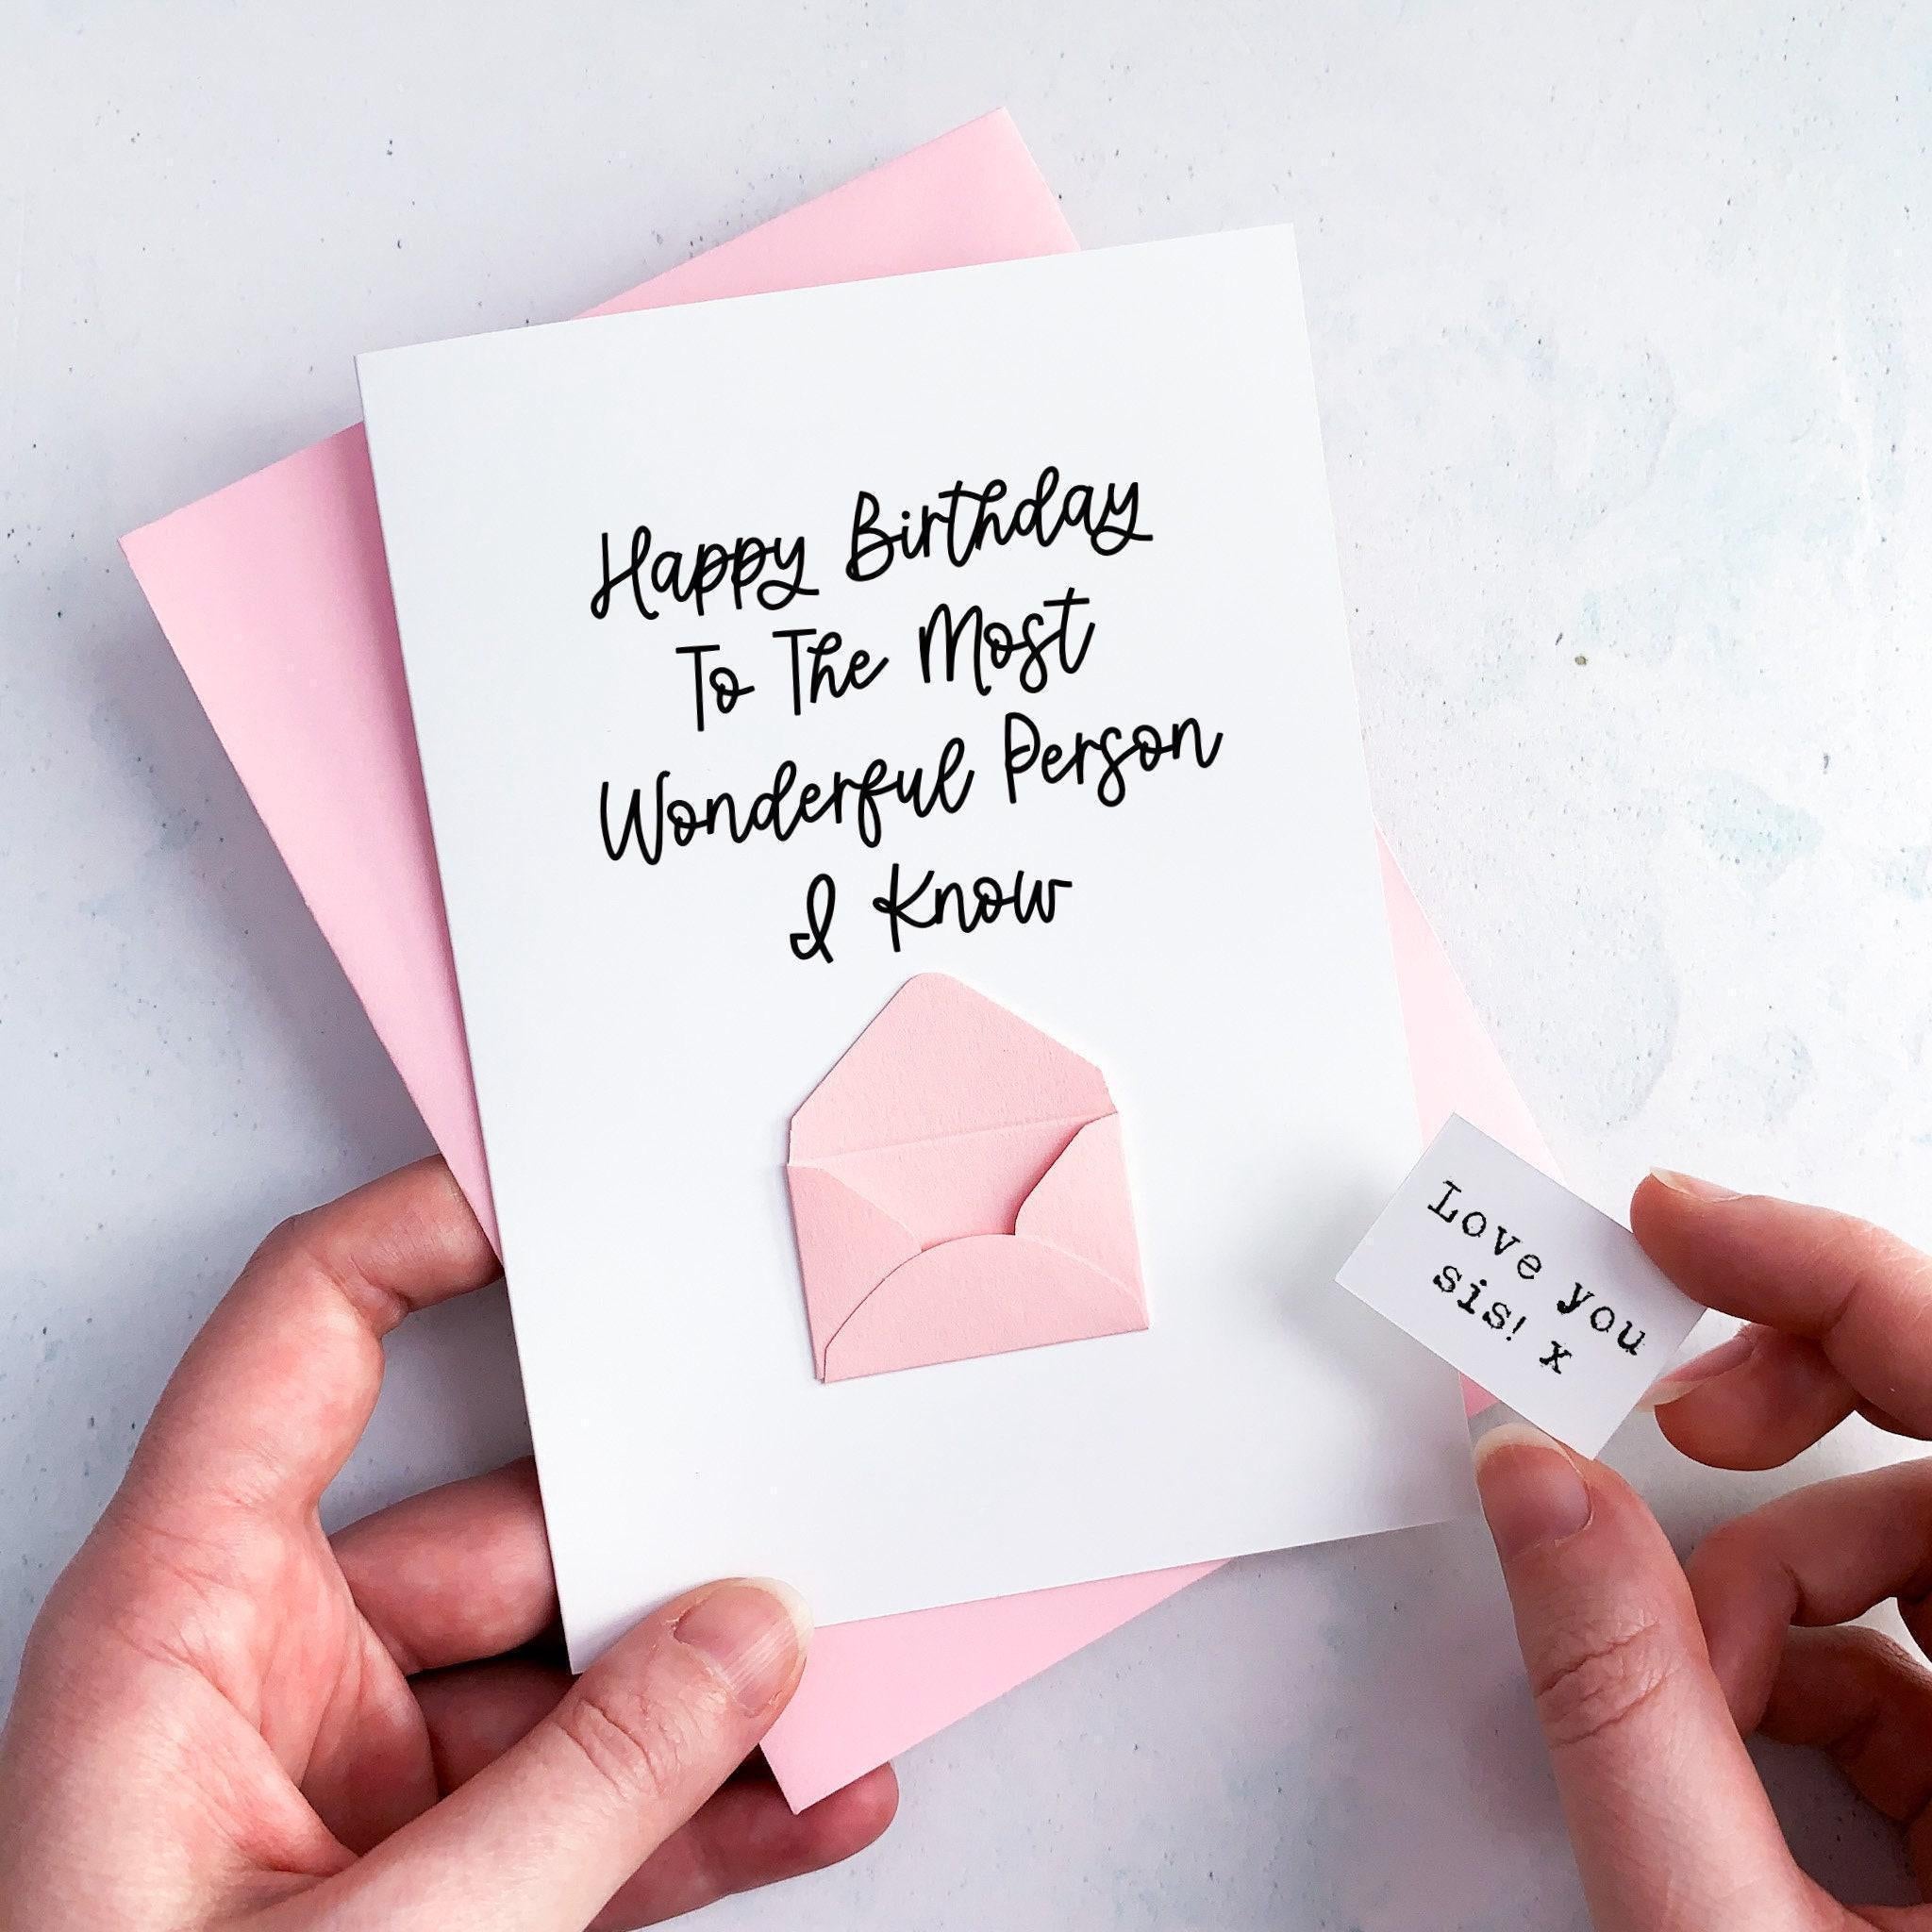 Happy Birthday
To The Most
Wonderful Person
I Know
Love you
sis! x